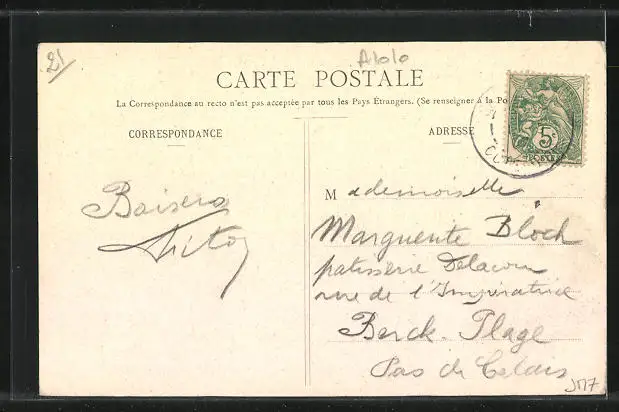 21
A1010
CARTE POSTALE
La Correspondance au recto n'est pas acceptée par tous les Pays Étrangers. (Se renseigner à la Po
CORRESPONDANCE
ADRESSE
5c
POSTES
Baisers
Mademoiselle
Marguerite Bloch
patisserie Delacour
rue de l'Impératrice
Berck-Plage
Pas de Calais